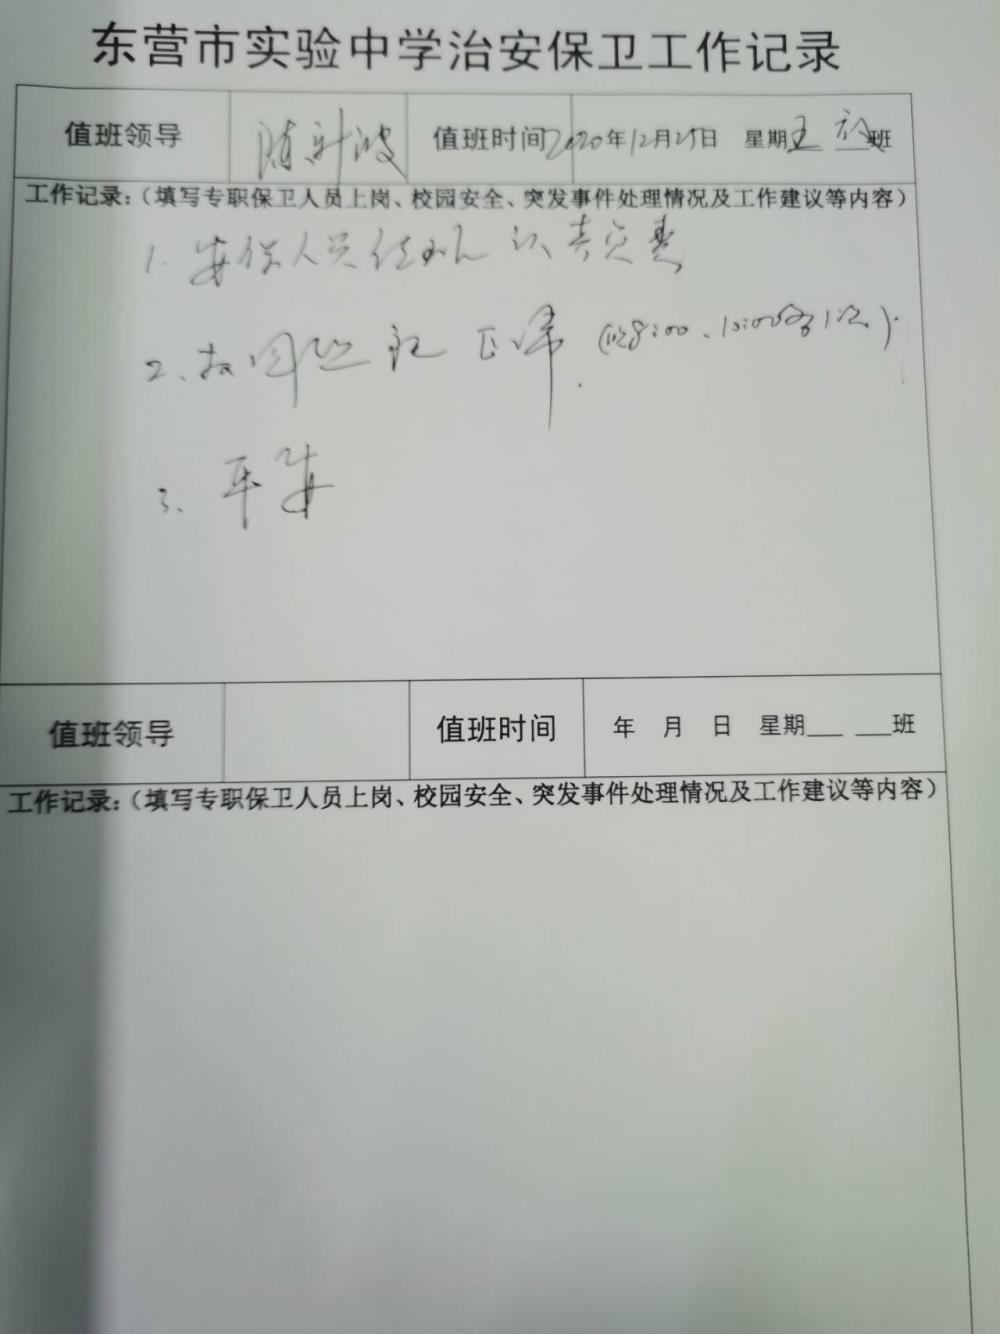 东营市实验中学治安保卫工作记录
值班领导 值班时间 2020年12月25日 星期五 班
工作记录：（填写专职保卫人员上岗、校园安全、突发事件处理情况及工作建议等内容）
1. 安保人员值班认真负责
2、校园巡视正常（晚8:00、10:00各1次）.
3、平安
值班领导 值班时间 年 月 日 星期___ ___班
工作记录：（填写专职保卫人员上岗、校园安全、突发事件处理情况及工作建议等内容）